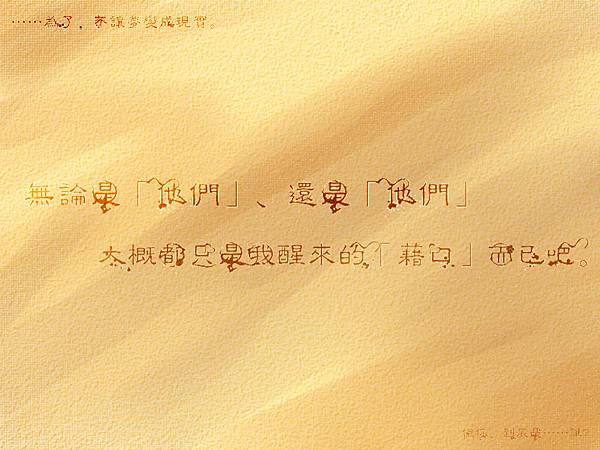 ……為了，不讓夢變成現實。
無論是「他們」、還是「他們」
大概都只是我醒來的「藉口」而已吧。